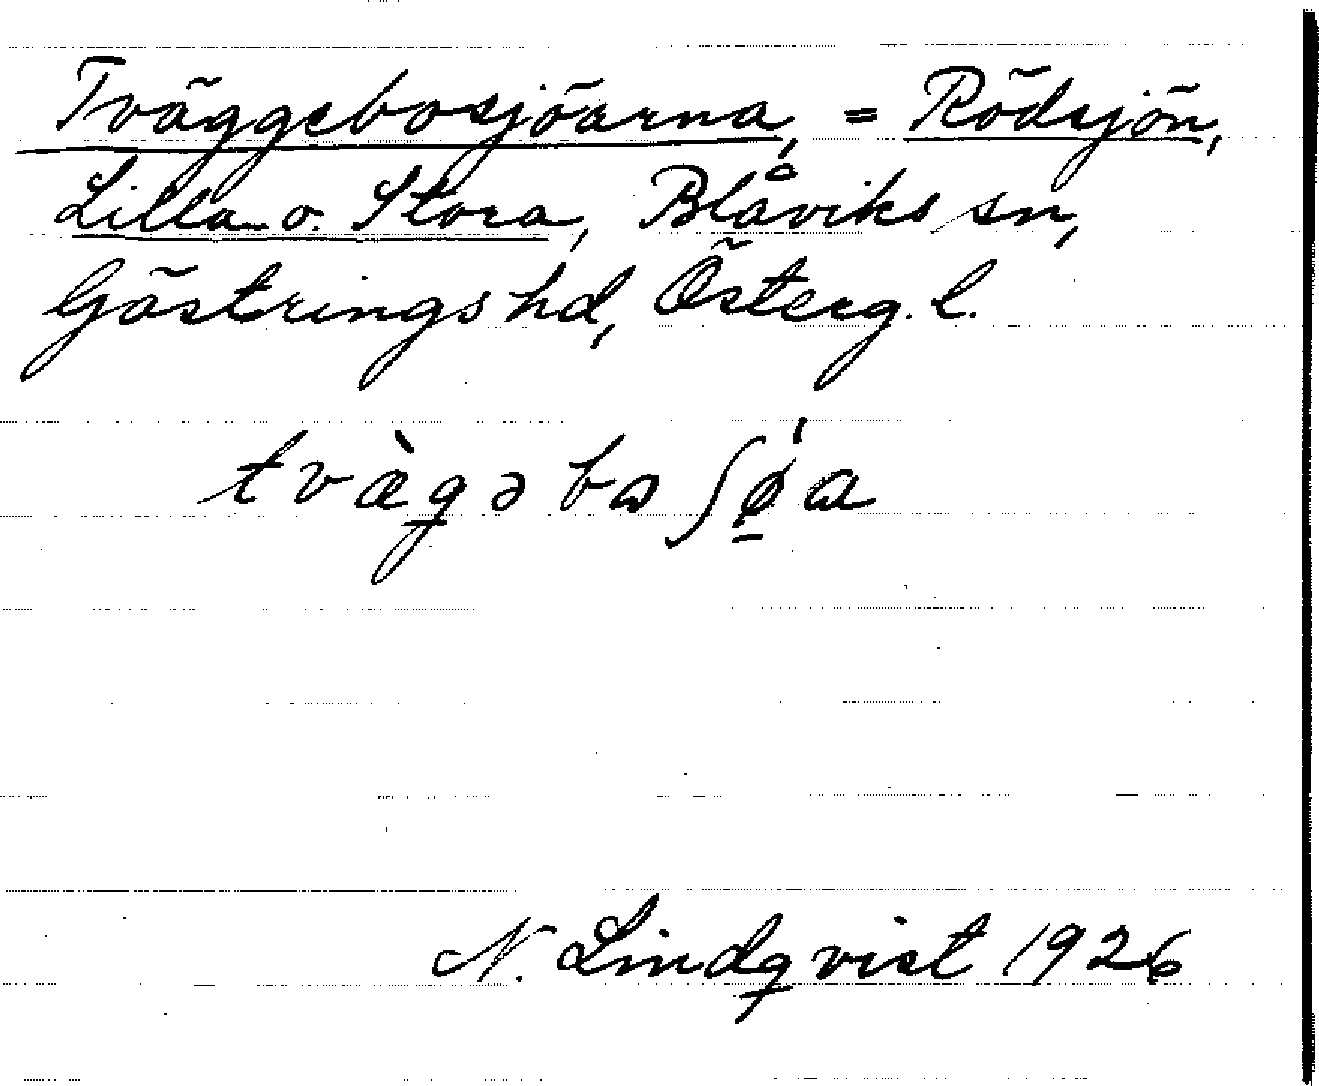 Tväggebosjöarna, = Rödsjön,
Lilla o. Stora, Blåviks sn,
Göstrings hd, Österg. l.
tvæ̀g̱əbɷʃǿ̱a
N. Lindqvist 1926